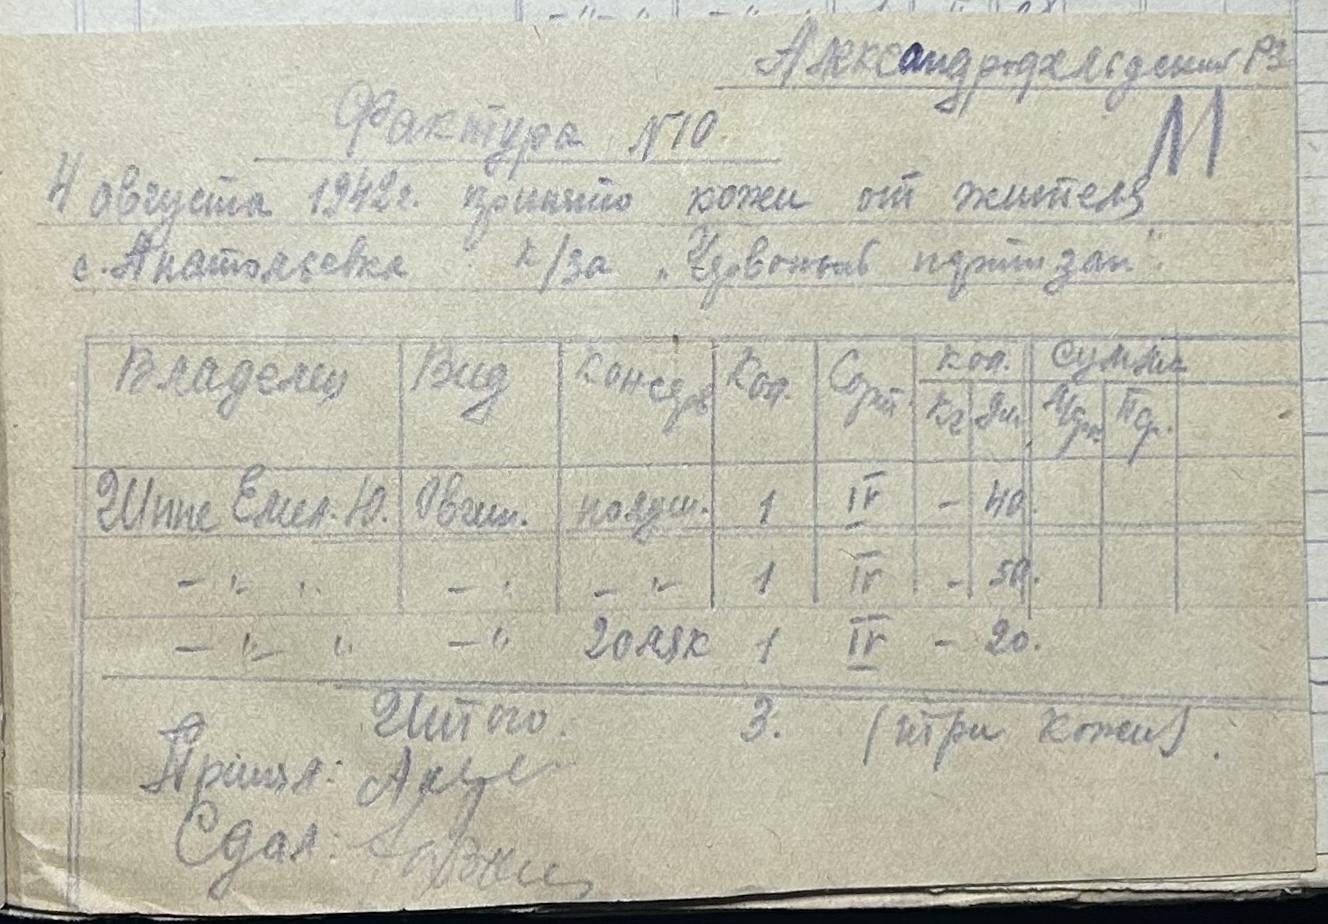 Александрфельдский РЗ
М
Фактура N10.
4 августа 1942г. принято кожи от жителя
с. Анатольевка к/за „Червоный партизан".
Владелец Вид Консерв Кол. Сорт. Кол. Сумма
Кг Дм. Марк Пф.
Шпне Емел. Ю. Овчин. полуш. 1 IV - 40.
-"- " -" -"- 1 IV - 50.
-"- " -" голяк 1 IV - 20.
Итого. 3. (три кожи).
Принял:
Сдал: